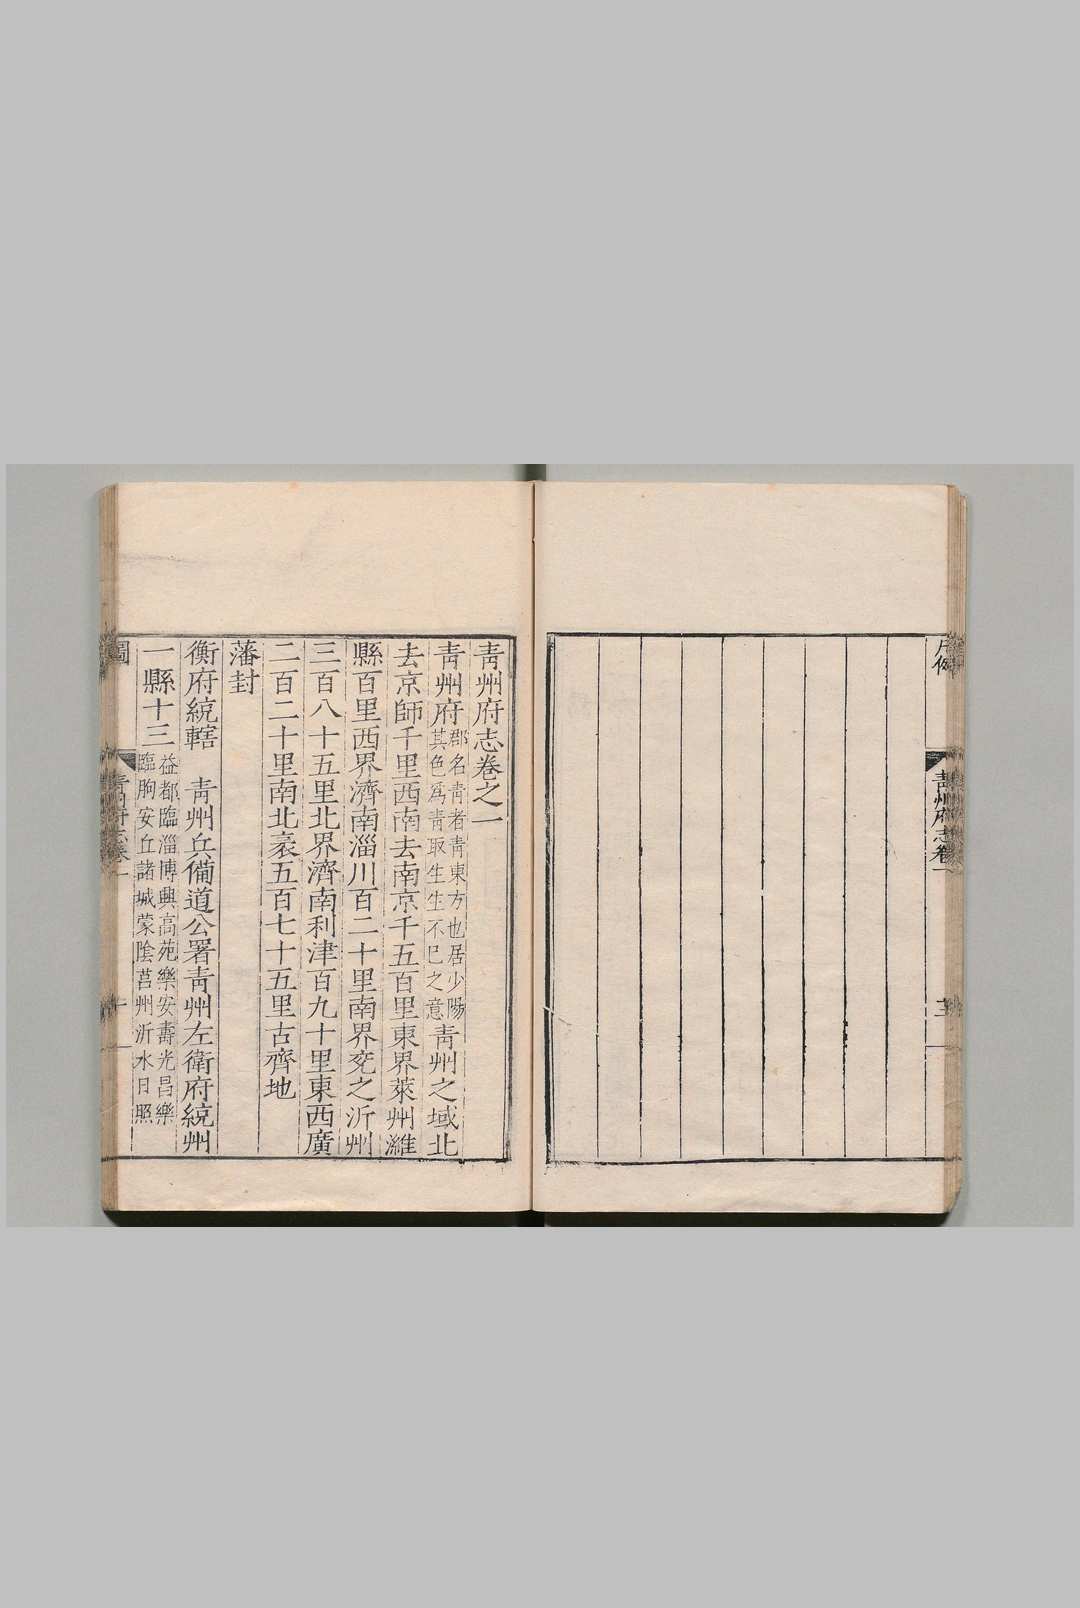 青州府志卷一
青州府志卷之一
青州府郡名青者青東方也居少陽其色爲青取生生不已之意青州之域北
去京師千里西南去南京千五百里東界萊州濰
縣百里西界濟南淄川百二十里南界兖之沂州
三百八十五里北界濟南利津百九十里東西廣
二百二十里南北袤五百七十五里古齊地
藩封
衡府統轄 青州兵備道公署青州左衛府統州
一縣十三益都臨淄博興高苑樂安壽光昌樂臨朐安丘諸城蒙陰莒州沂水日照
圖
青州府志卷一